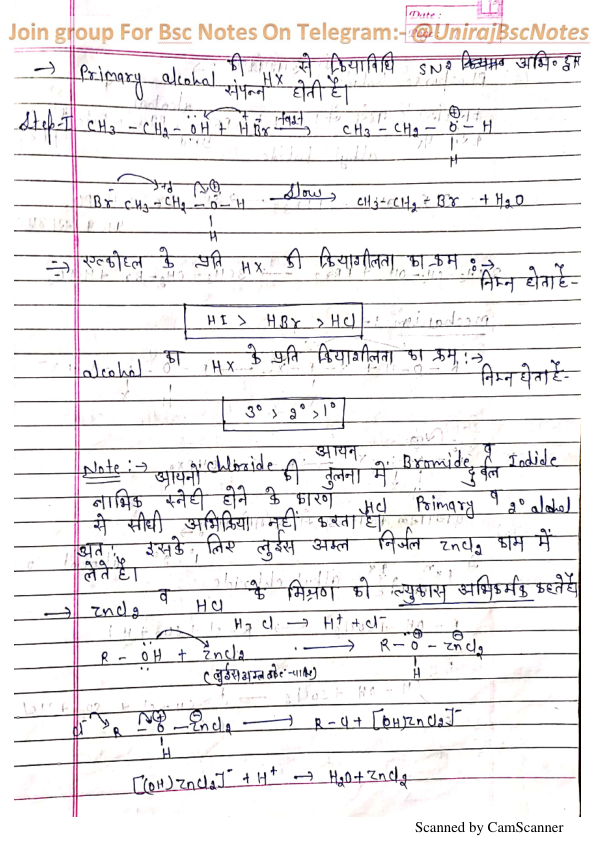 Date:
Join group For Bsc Notes On Telegram:- @UnirajBscNotes
→ Primary alcohol की HX से क्रियाविधि SN² अभि०
संपन्न होती है।
Step-I CH3 - CH2 - ÖH + HBr fast→ CH3 - CH2 - O⊕ - H
H
Br CH3 - CH2 - O⊕ - H Slow→ CH3 - CH2 - Br + H2O
H
⇒ एल्कोहल के प्रति HX की क्रियाशीलता का क्रम :→
निम्न होता है-
HI > HBr > HCl
alcohol का HX के प्रति क्रियाशीलता का क्रम :→
निम्न होता है-
3° > 2° > 1°
Note :→ Chloride आयन Bromide व Iodide
आयनों की तुलना में दुर्बल
नाभिक स्नेही होने के कारण HCl Primary व 2° alcohol
से सीधी अभिक्रिया नहीं करता है।
अत: इसके लिए लुईस अम्ल निर्जल ZnCl2 काम में
लेते है।
→ ZnCl2 व HCl के मिश्रण को ल्युकास अभिकर्मक कहते है
HCl → H+ + Cl-
R - ÖH + ZnCl2 → R - O⊕ - ZnCl2⊖
H
(लुईस अम्ल
Cl- R - O⊕ - ZnCl2⊖ → R-Cl + [(OH)ZnCl2]-
H
[(OH)ZnCl2]- + H+ → H2O + ZnCl2
Scanned by CamScanner